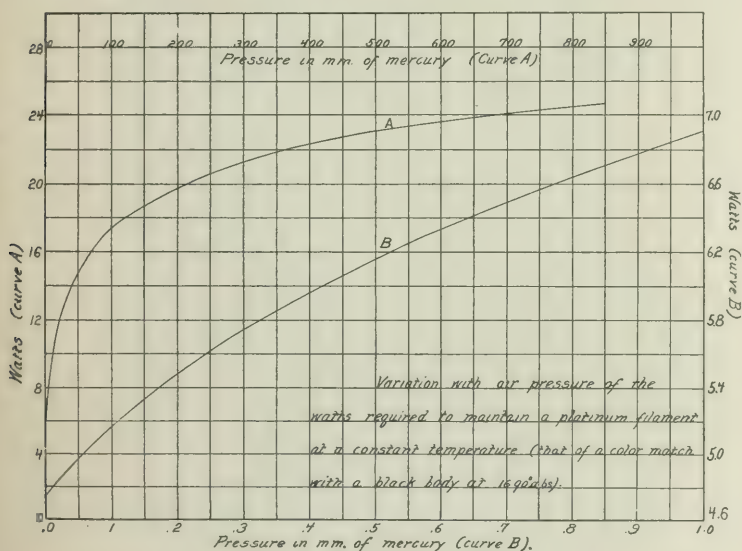 28
0 100 200 300 400 500 600 700 800 900
Pressure in mm. of mercury (Curve A)
24
20
16
12
8
4
0
Watts (curve A)
A
B
7.0
6.6
6.2
5.8
5.4
5.0
4.6
Watts (curve B)
Variation with air pressure of the
watts required to maintain a platinum filament
at a constant temperature (that of a color match
with a black body at 1690° abs).
.0 .1 .2 .3 .4 .5 .6 .7 .8 .9 1.0
Pressure in mm. of mercury (curve B).